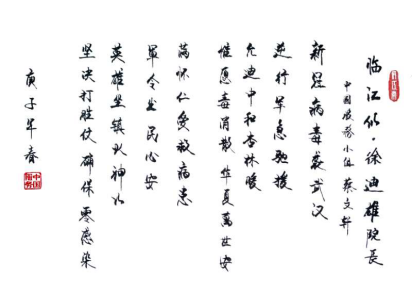 临江仙·徐迪雄院长
中国服务小佳 蔡文轩
新冠病毒袭武汉
逆行军急驰援
允迪中和杏林暖
惟愿毒消散 华夏万世安
满怀仁爱救病患
军令出 民心安
英雄坐镇队神
坚决打胜仗 确保零感染
庚子年春